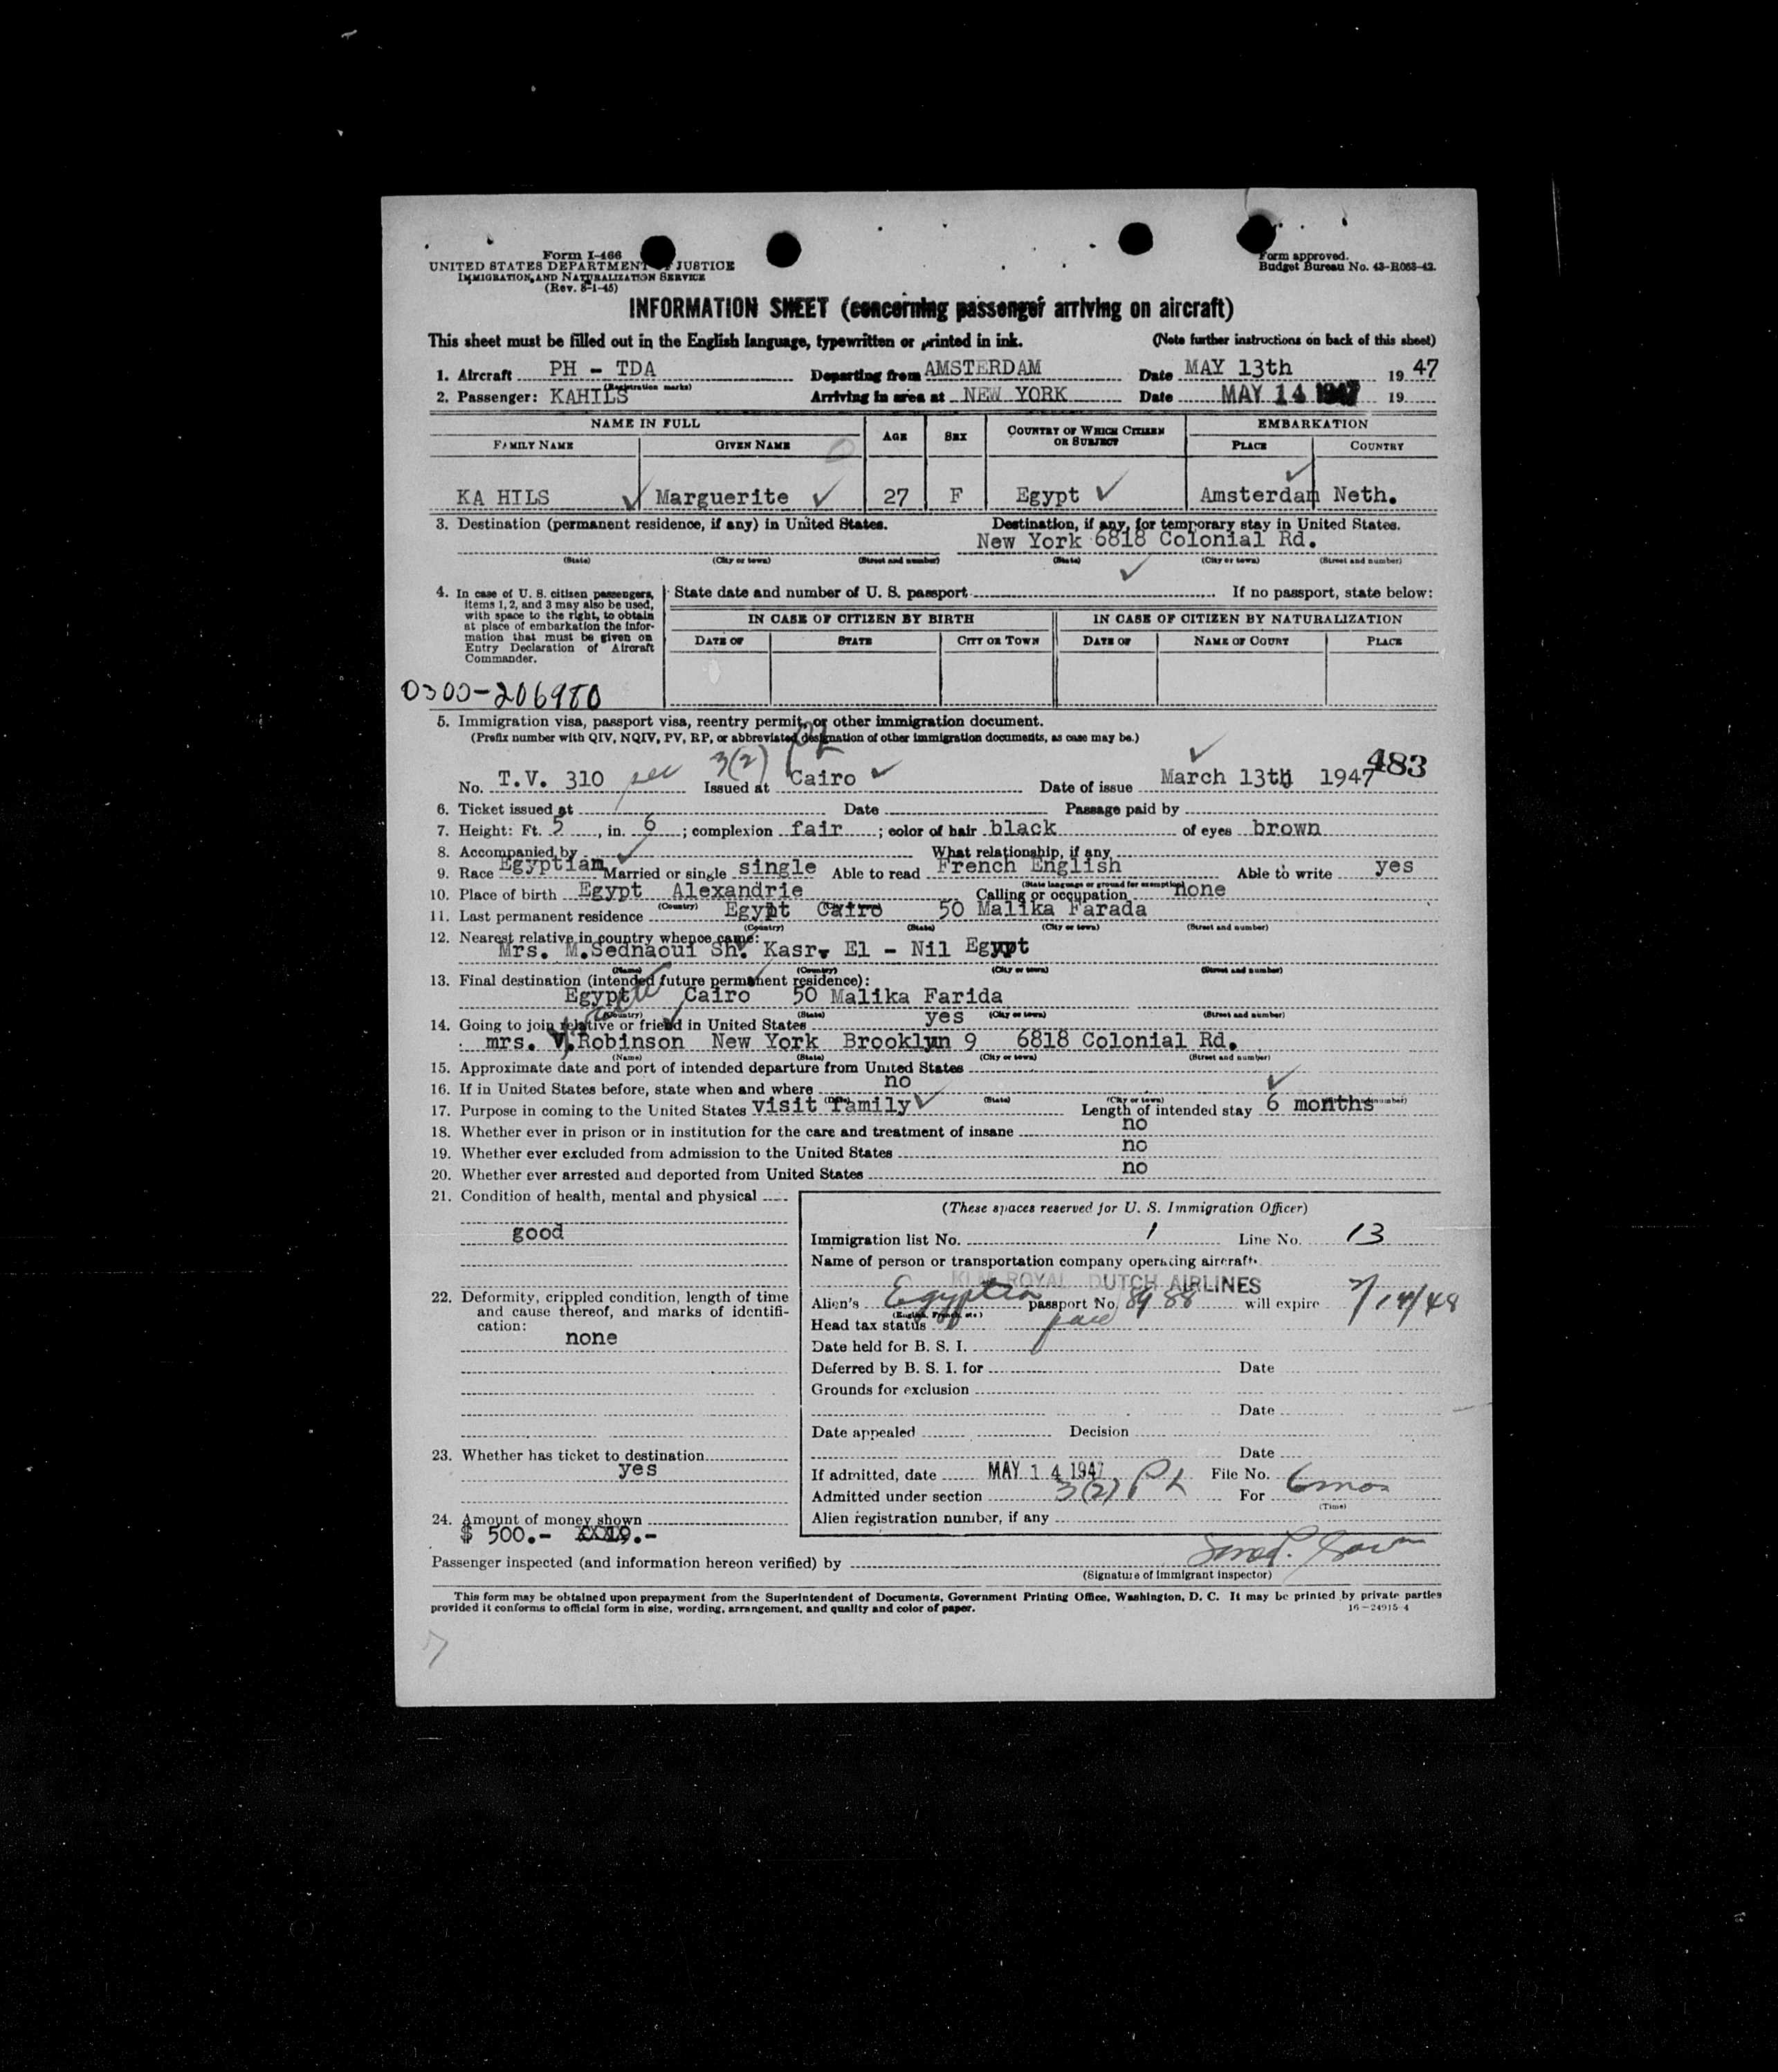 Form I-466
UNITED STATES DEPARTMENT OF JUSTICE
IMMIGRATION AND NATURALIZATION SERVICE
(Rev. 8-1-45)
Form approved.
Budget Bureau No. 43-R063-42.
INFORMATION SHEET (concerning passenger arriving on aircraft)
This sheet must be filled out in the English language, typewritten or printed in ink. (Note further instructions on back of this sheet)
1. Aircraft PH - TDA Departing from AMSTERDAM Date MAY 13th 1947
(Registration marks)
2. Passenger: KAHILS Arriving in area at NEW YORK Date MAY 14 1947 19
NAME IN FULL AGE SEX COUNTRY OF WHICH CITIZEN OR SUBJECT EMBARKATION
FAMILY NAME GIVEN NAME PLACE COUNTRY
KA HILS Marguerite 27 F Egypt Amsterdam Neth.
3. Destination (permanent residence, if any) in United States. Destination, if any, for temporary stay in United States.
New York 6818 Colonial Rd.
(State) (City or town) (Street and number) (State) (City or town) (Street and number)
4. In case of U. S. citizen passengers, items 1, 2, and 3 may also be used, with space to the right, to obtain at place of embarkation the information that must be given on Entry Declaration of Aircraft Commander.
State date and number of U. S. passport If no passport, state below:
IN CASE OF CITIZEN BY BIRTH IN CASE OF CITIZEN BY NATURALIZATION
DATE OF STATE CITY OR TOWN DATE OF NAME OF COURT PLACE
0300-206980
5. Immigration visa, passport visa, reentry permit, or other immigration document.
(Prefix number with QIV, NQIV, PV, RP, or abbreviated designation of other immigration documents, as case may be.)
3(2)
483
No. T.V. 310 Issued at Cairo Date of issue March 13th 1947
6. Ticket issued at Date Passage paid by
7. Height: Ft. 5, in. 6; complexion fair; color of hair black of eyes brown
8. Accompanied by What relationship, if any
9. Race Egyptian Married or single single Able to read French English Able to write yes
(State language or ground for exemption)
10. Place of birth Egypt Alexandrie Calling or occupation none
(Country) (City or town)
11. Last permanent residence Egypt Cairo 50 Malika Farada
(Country) (State) (City or town) (Street and number)
12. Nearest relative in country whence came:
Mrs. M.Sednaoui Sh. Kasr. El - Nil Egypt
(Name) (Country) (City or town) (Street and number)
13. Final destination (intended future permanent residence):
Egypt Cairo 50 Malika Farida
(Country) (State) (City or town) (Street and number)
14. Going to join relative or friend in United States yes
mrs. V.Robinson New York Brooklyn 9 6818 Colonial Rd.
(Name) (State) (City or town) (Street and number)
15. Approximate date and port of intended departure from United States
16. If in United States before, state when and where no
(Date) (State) (City or town) (Street and number)
17. Purpose in coming to the United States visit family Length of intended stay 6 months
18. Whether ever in prison or in institution for the care and treatment of insane no
19. Whether ever excluded from admission to the United States no
20. Whether ever arrested and deported from United States no
21. Condition of health, mental and physical
good
22. Deformity, crippled condition, length of time and cause thereof, and marks of identification:
none
23. Whether has ticket to destination
yes
24. Amount of money shown
$ 500.- XXX19.-
(These spaces reserved for U. S. Immigration Officer)
Immigration list No. 1 Line No. 13
Name of person or transportation company operating aircraft
KLM ROYAL DUTCH AIRLINES
Alien's Egyptian passport No. 8988 will expire
(English, French, etc.)
Head tax status
Date held for B. S. I.
Deferred by B. S. I. for Date
Grounds for exclusion
Date
Date appealed Decision
Date
If admitted, date MAY 14 1947 File No.
Admitted under section 3(2) For 6 mos
(Time)
Alien registration number, if any
Passenger inspected (and information hereon verified) by
(Signature of immigrant inspector)
This form may be obtained upon prepayment from the Superintendent of Documents, Government Printing Office, Washington, D. C. It may be printed by private parties
provided it conforms to official form in size, wording, arrangement, and quality and color of paper.
16-24915-4